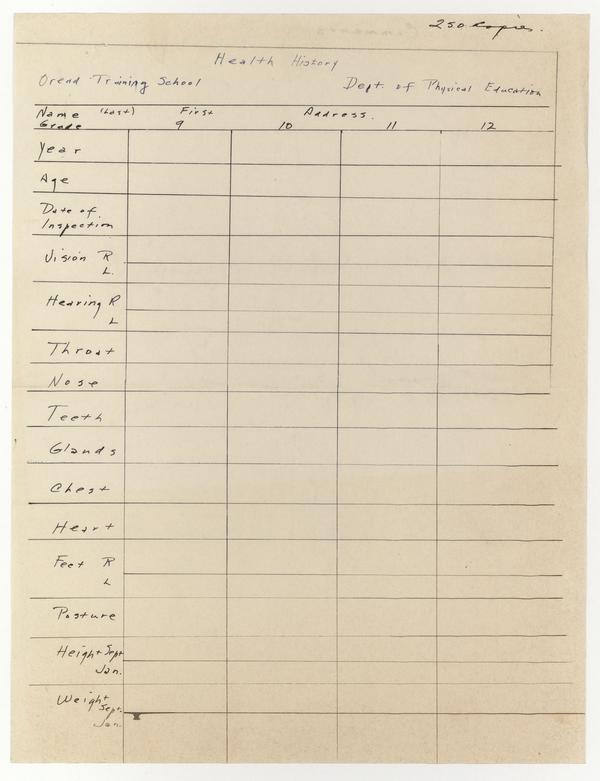 250 Copies.
Health History
Orend Training School Dept. of Physical Education
Name (Last) First Address.
Grade 9 10 11 12
Year
Age
Date of
Inspection
Vision R
L.
Hearing R
L
Throat
Nose
Teeth
Glands
Chest
Heart
Feet R
L
Posture
Height Sept
Jan.
Weight
Sept.
Jan.